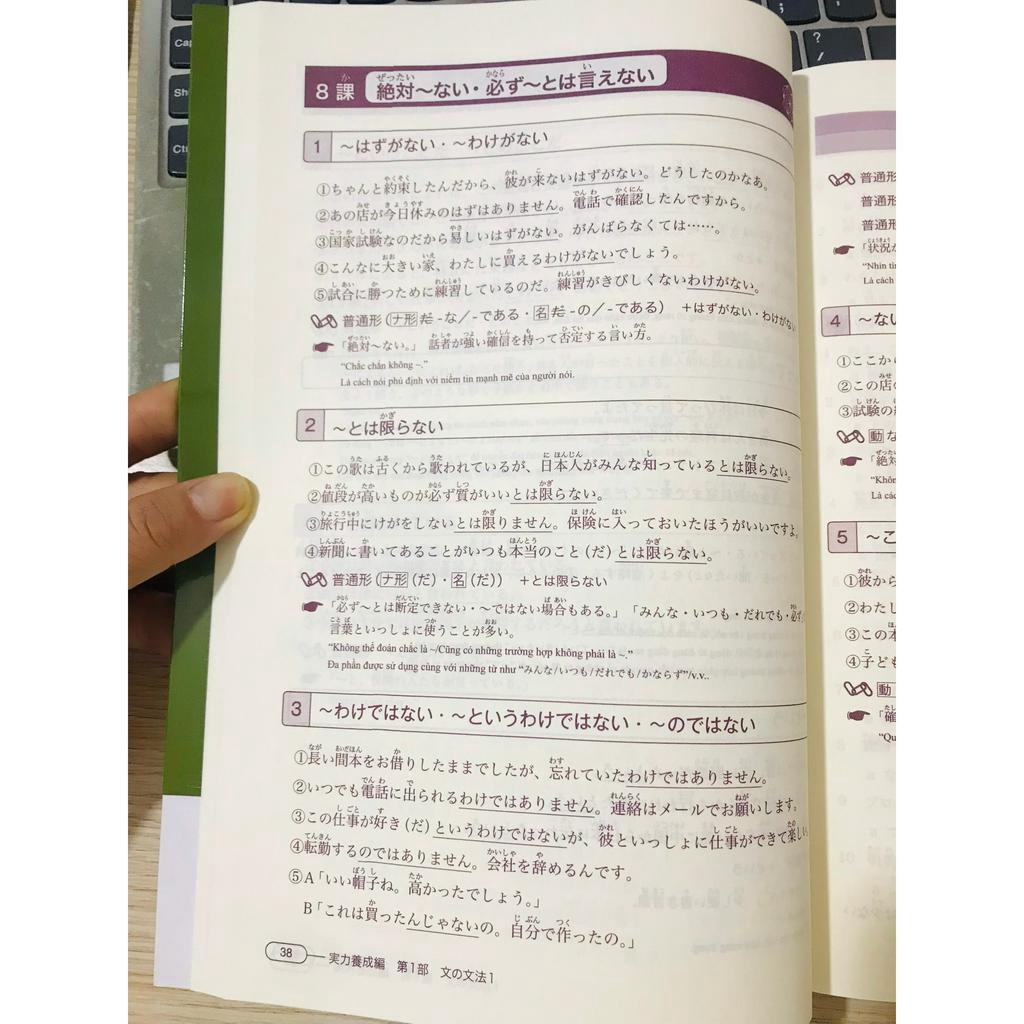 8課 絶対～ない・必ず～とは言えない
1 ～はずがない・～わけがない
①ちゃんと約束したんだから、彼が来ないはずがない。どうしたのかなあ。
②あの店が今日休みのはずはありません。電話で確認したんですから。
③国家試験なのだから易しいはずがない。がんばらなくては……。
④こんなに大きい家、わたしに買えるわけがないでしょう。
⑤試合に勝つために練習しているのだ。練習がきびしくないわけがない。
普通形（ナ形だ-な/-である・名だ-の/-である） ＋はずがない・わけがない
「絶対～ない。」 話者が強い確信を持って否定する言い方。
“Chắc chắn không ~.”
Là cách nói phủ định với niềm tin mạnh mẽ của người nói.
2 ～とは限らない
①この歌は古くから歌われているが、日本人がみんな知っているとは限らない。
②値段が高いものが必ず質がいいとは限らない。
③旅行中にけがをしないとは限りません。保険に入っておいたほうがいいですよ。
④新聞に書いてあることがいつも本当のこと（だ）とは限らない。
普通形（ナ形（だ）・名（だ）） ＋とは限らない
「必ず～とは断定できない・～ではない場合もある。」「みんな・いつも・だれでも・必ず
言葉といっしょに使うことが多い。
“Không thể đoán chắc là ~/Cũng có những trường hợp không phải là ~.”
Đa phần được sử dụng cùng với những từ như “みんな/いつも/だれでも/かならず”/v.v..
3 ～わけではない・～というわけではない・～のではない
①長い間本をお借りしたままでしたが、忘れていたわけではありません。
②いつでも電話に出られるわけではありません。連絡はメールでお願いします。
③この仕事が好き（だ）というわけではないが、彼といっしょに仕事ができて楽しい
④転勤するのではありません。会社を辞めるんです。
⑤A「いい帽子ね。高かったでしょう。」
B「これは買ったんじゃないの。自分で作ったの。」
38 実力養成編 第1部 文の文法1
普通形
普通形
普通形
「状況が
“Nhìn tì
Là cách
4 ～ない
①ここから
②この店の
③試験の
動な
「絶対
“Khôn
Là các
5 ～こ
①彼から
②わたし
③この本
④子ども
動
「確
“Qu
Cap
Shi
Ctrl
?
/